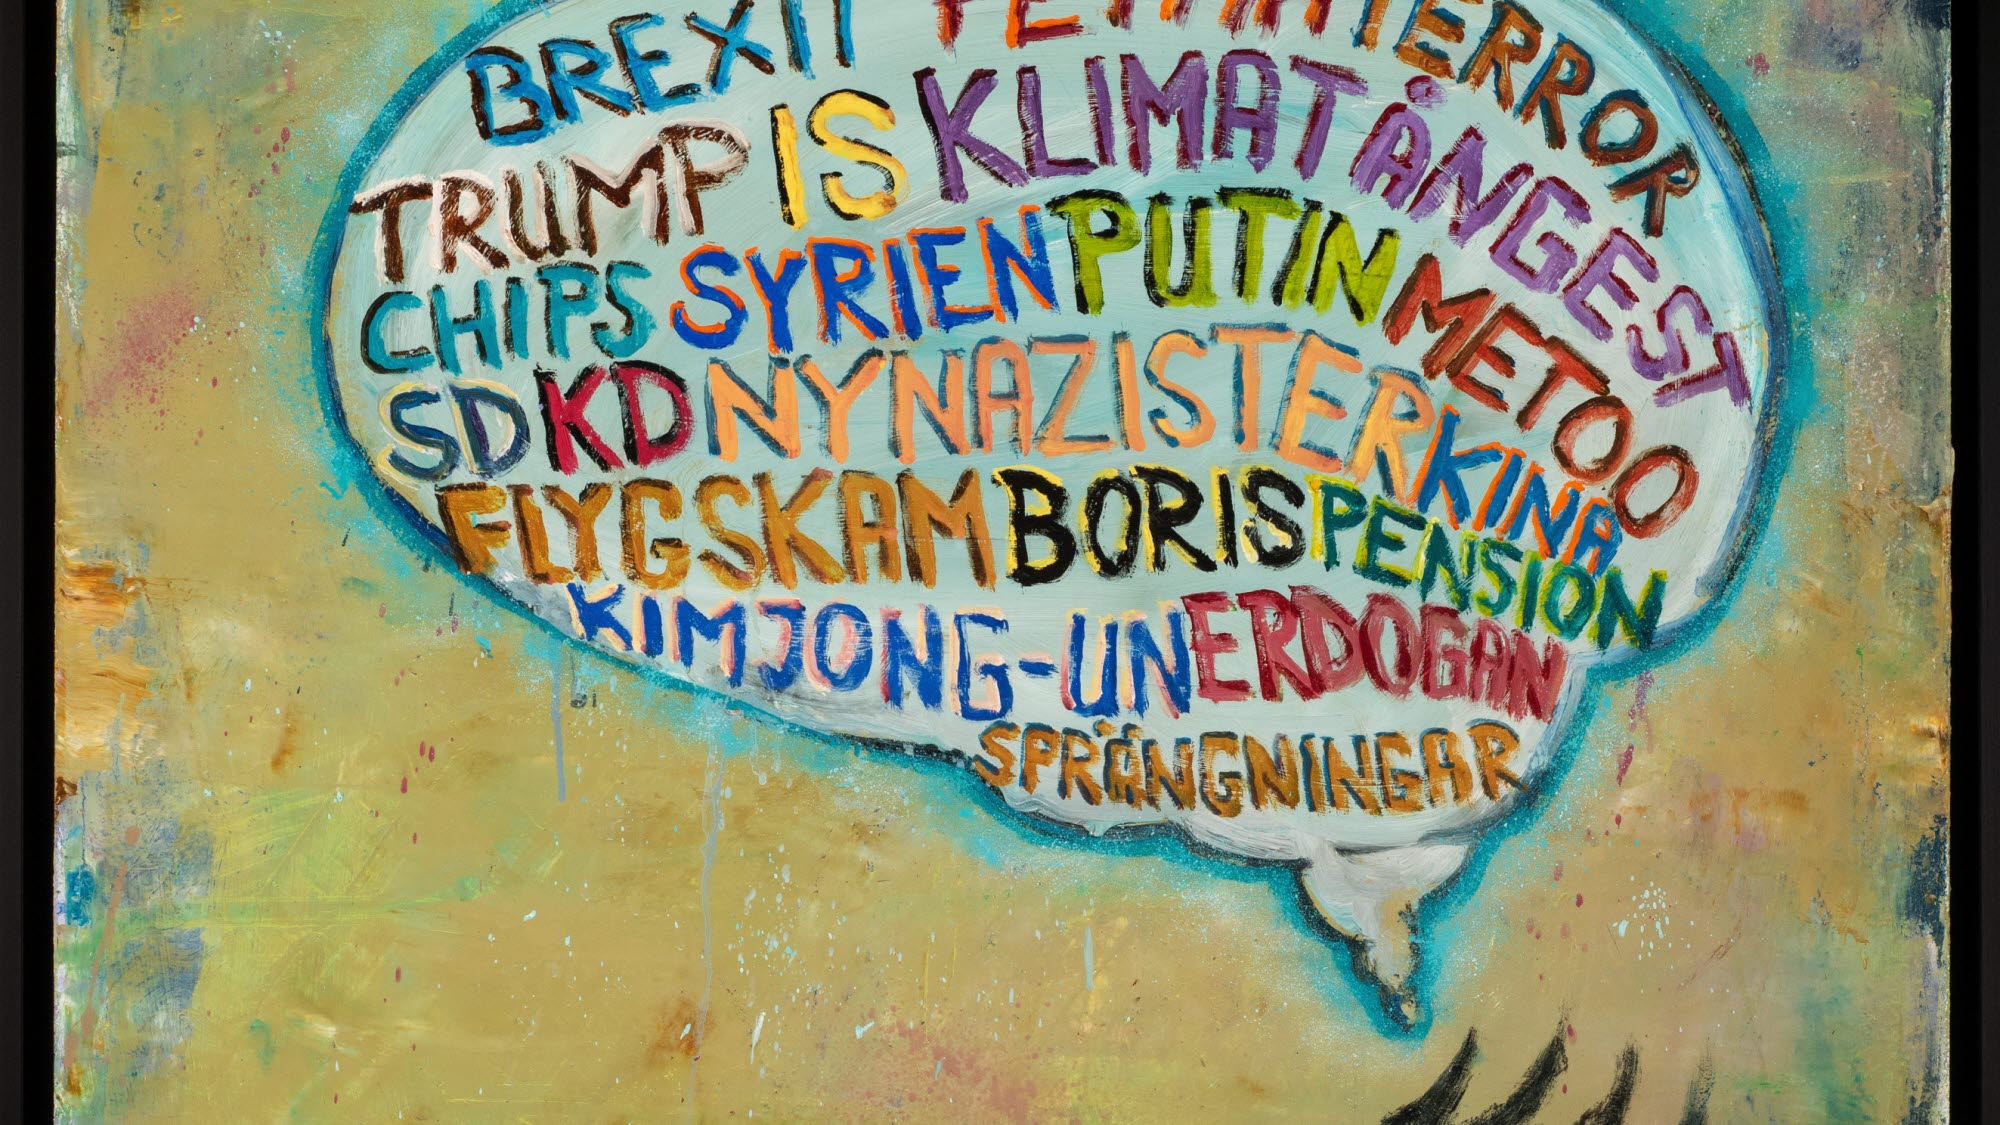 BREXIT TERROR
TRUMP IS KLIMATÅNGEST
CHIPS SYRIEN PUTIN METOO
SD KD NYNAZISTER KINA
FLYGSKAM BORIS PENSION
KIM JONG-UN ERDOGAN
SPRÄNGNINGAR